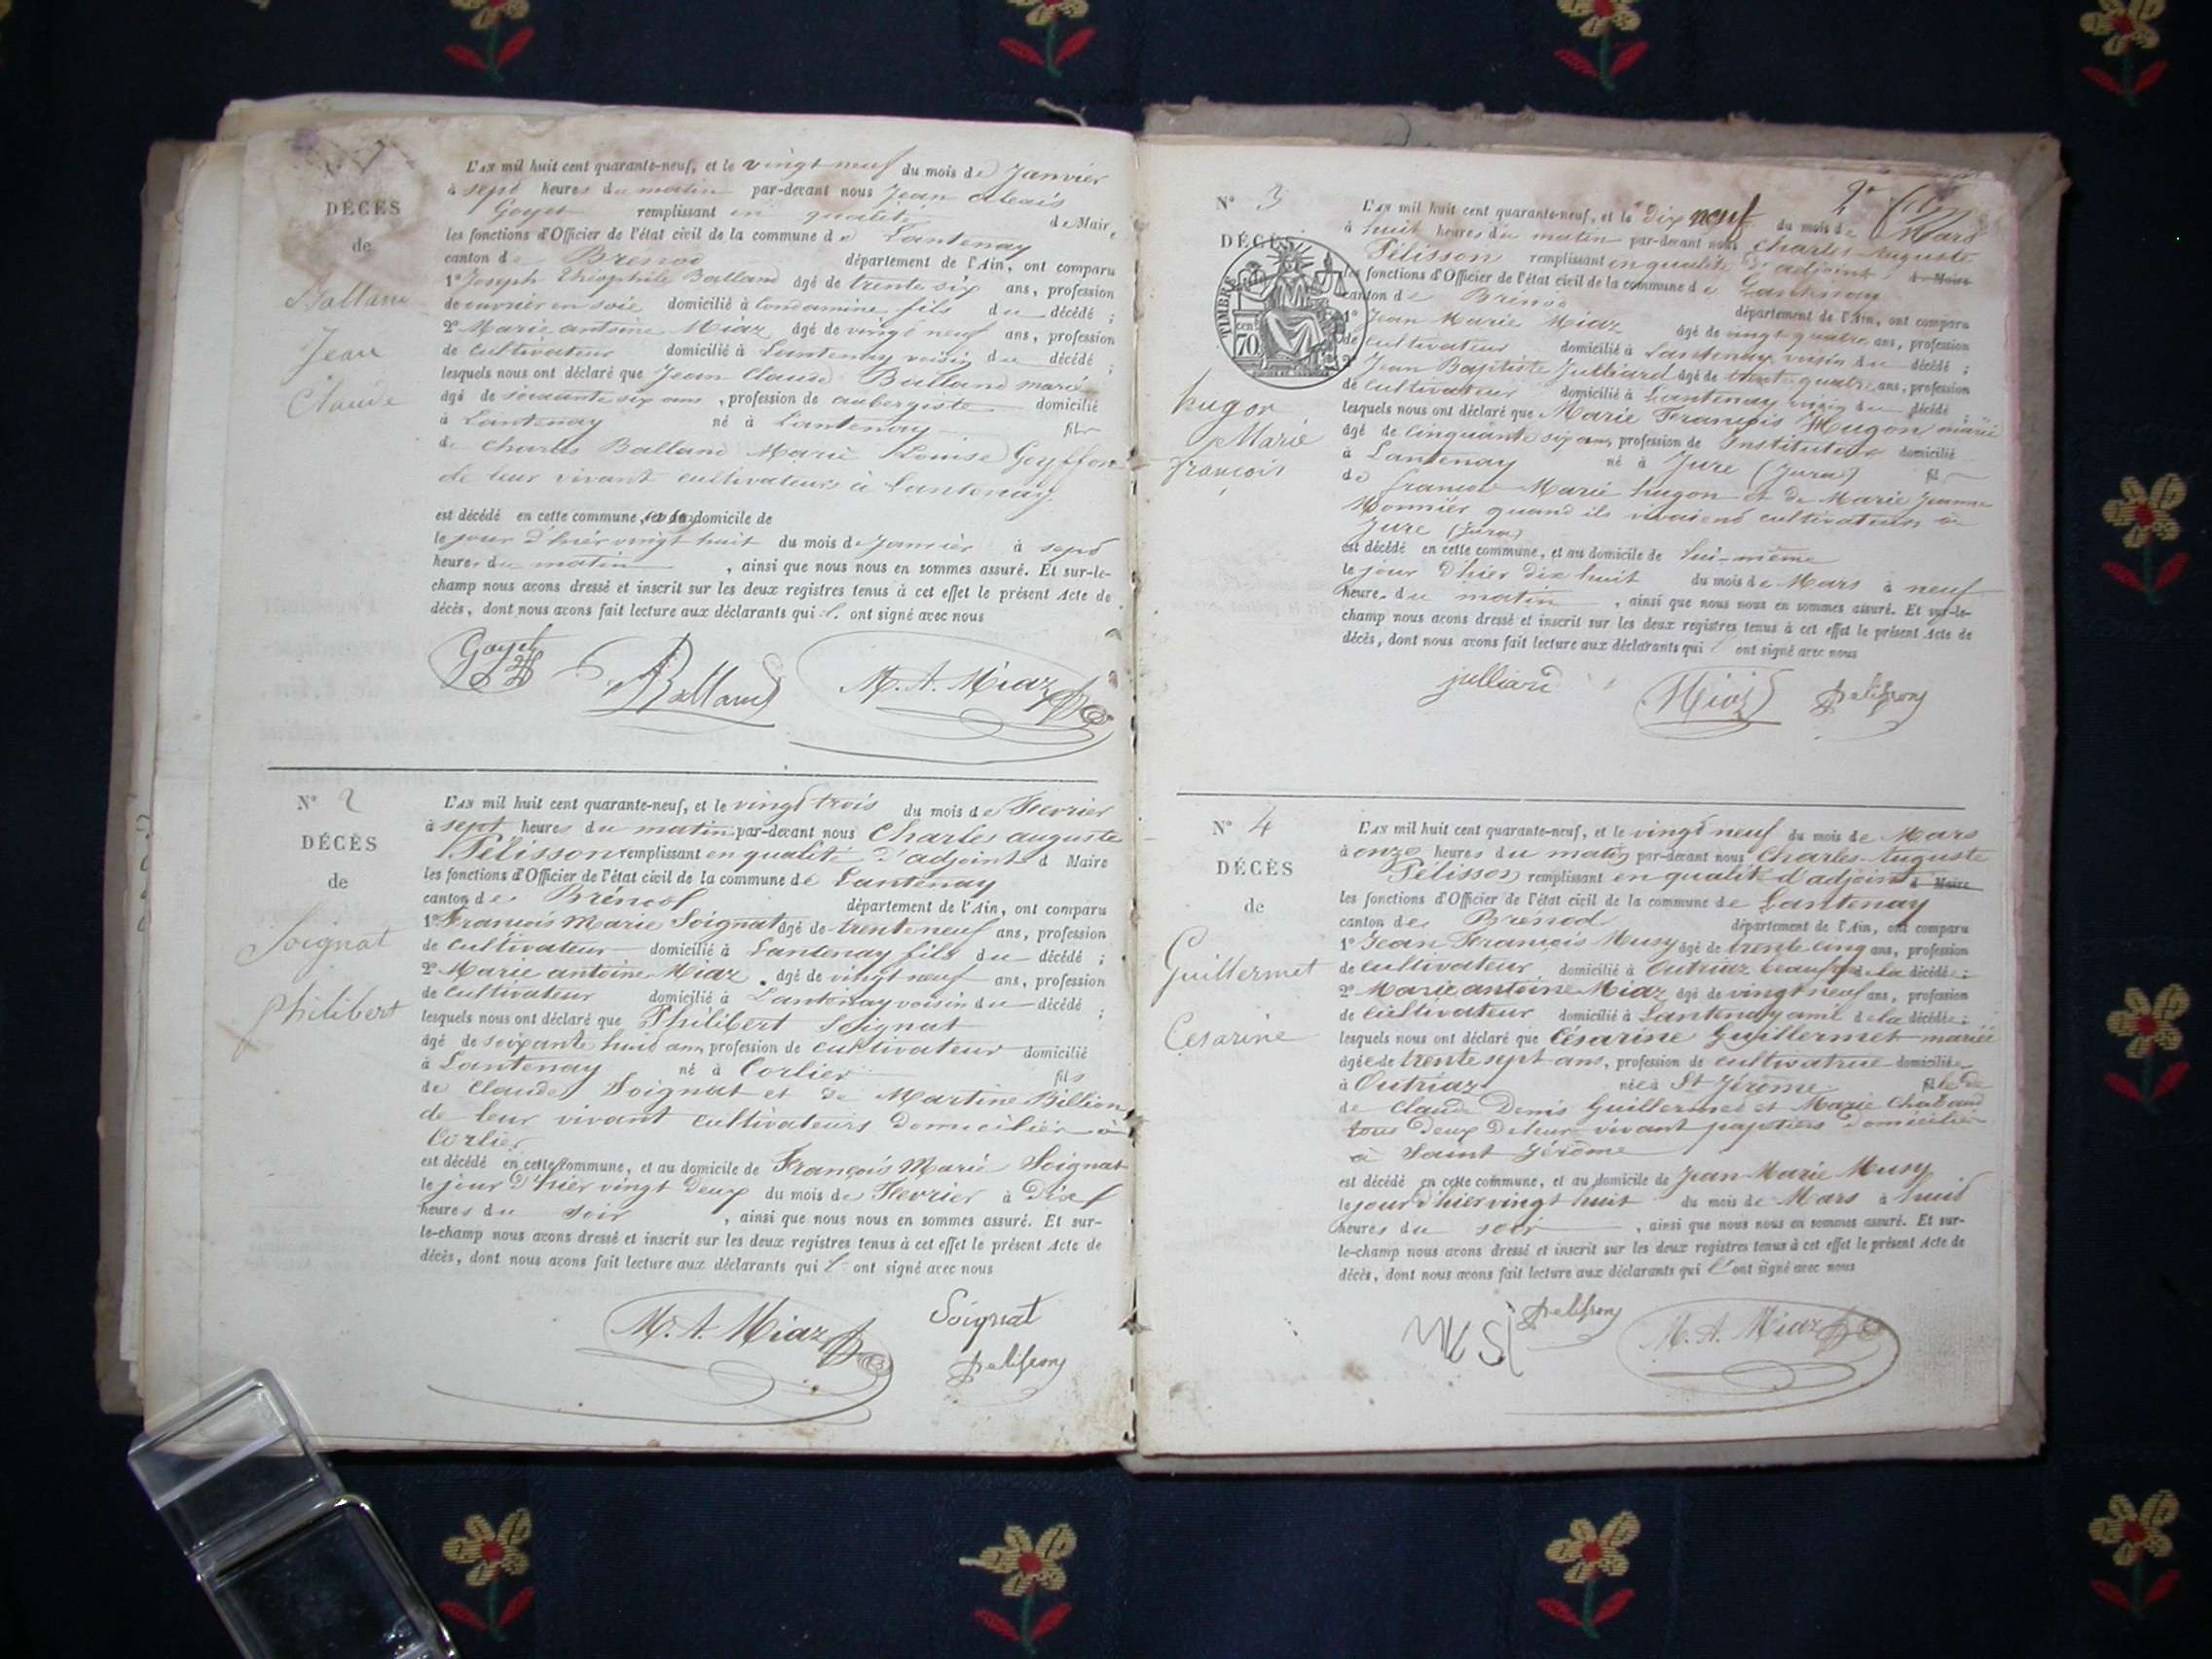 DÉCÈS
de
Balland
Jean
Claude
L'AN mil huit cent quarante-neuf, et le vingt neuf du mois de Janvier
à sept heures du matin par-devant nous Jean Alexis
Goyet remplissant en qualité de Maire
les fonctions d'Officier de l'état civil de la commune de Lantenay
canton de Brenod département de l'Ain, ont comparu
1° Joseph Théophile Balland âgé de trente six ans, profession
de ouvrier en soie domicilié à Condamine fils du décédé ;
2° Marie antoine Miaz âgé de vingt neuf ans, profession
de Cultivateur domicilié à Lantenay voisin du décédé ;
lesquels nous ont déclaré que Jean Claude Balland marié
âgé de soixante six ans, profession de aubergiste domicilié
à Lantenay né à Lantenay fils
de Charles Balland Marie Louise Goyffon
de leur vivant cultivateurs à Lantenay
est décédé en cette commune, domicile de
le jour d'hier vingt huit du mois de Janvier à sept
heures du matin, ainsi que nous nous en sommes assuré. Et sur-le-
champ nous avons dressé et inscrit sur les deux registres tenus à cet effet le présent Acte de
décès, dont nous avons fait lecture aux déclarants qui l' ont signé avec nous
Goyet Balland M. A. Miaz
N° 2
DÉCÈS
de
Soignat
Philibert
L'AN mil huit cent quarante-neuf, et le vingt trois du mois de Fevrier
à sept heures du matin par-devant nous Charles auguste
Pélisson remplissant en qualité d'adjoint d Maire
les fonctions d'Officier de l'état civil de la commune de Lantenay
canton de Brénod département de l'Ain, ont comparu
1° François Marie Soignat âgé de trente neuf ans, profession
de Cultivateur domicilié à Lantenay fils du décédé ;
2° Marie antoine Miaz âgé de vingt neuf ans, profession
de Cultivateur domicilié à Lantenay voisin du décédé ;
lesquels nous ont déclaré que Philibert Soignat
âgé de soixante huit ans, profession de cultivateur domicilié
à Lantenay né à Corlier fils
de Claude Soignat et de Martine Billion
de leur vivant cultivateurs domiciliés à
Corlier
est décédé en cette commune, et au domicile de François Marie Soignat
le jour d'hier vingt deux du mois de Fevrier à dix
heures du soir, ainsi que nous nous en sommes assuré. Et sur-
le-champ nous avons dressé et inscrit sur les deux registres tenus à cet effet le présent Acte de
décès, dont nous avons fait lecture aux déclarants qui l' ont signé avec nous
M. A. Miaz Soignat
Pelisson
2e
N° 3
DÉCÈS
TIMBRE
70
hugon
Marie
françois
L'AN mil huit cent quarante-neuf, et le dix neuf du mois de Mars
à huit heures du matin par-devant nous Charles Auguste
Pélisson remplissant en qualité d'adjoint d Maire
les fonctions d'Officier de l'état civil de la commune de Lantenay
canton de Brénod département de l'Ain, ont comparu
1° Jean Marie Miaz âgé de vingt quatre ans, profession
de cultivateur domicilié à Lantenay voisin du décédé ;
2° Jean Baptiste Julliard âgé de trente quatre ans, profession
de Cultivateur domicilié à Lantenay voisin du décédé ;
lesquels nous ont déclaré que Marie François Hugon marié
âgé de Cinquante six ans, profession de Instituteur domicilié
à Lantenay né à Jure (Jura) fils
de françois Marie hugon et de Marie Jeanne
Monnier quand ils vivaient cultivateurs à
Jure (Jura)
est décédé en cette commune, et au domicile de lui-même
le jour d'hier dix huit du mois de Mars à neuf
heures du matin, ainsi que nous nous en sommes assuré. Et sur-le-
champ nous avons dressé et inscrit sur les deux registres tenus à cet effet le présent Acte de
décès, dont nous avons fait lecture aux déclarants qui l ont signé avec nous
julliard Miaz Pelisson
N° 4
DÉCÈS
de
Guillermet
Césarine
L'AN mil huit cent quarante-neuf, et le vingt neuf du mois de Mars
à onze heures du matin par-devant nous Charles-Auguste
Pélisson remplissant en qualité d'adjoint d Maire
les fonctions d'Officier de l'état civil de la commune de Lantenay
canton de Brénod département de l'Ain, ont comparu
1° Jean François Musy âgé de trente cinq ans, profession
de cultivateur domicilié à Outriaz beaufrère de la décédée ;
2° Marie antoine Miaz âgé de vingt neuf ans, profession
de Cultivateur domicilié à Lantenay ami de la décédée ;
lesquels nous ont déclaré que Césarine Guillermet mariée
âgée de trente sept ans, profession de cultivatrice domiciliée
à Outriaz née à St Jérôme fille de
de Claude Denis Guillermet et Marie Chabaud
tous deux de leur vivant papetiers domiciliés
à Saint Jérôme
est décédé en cette commune, et au domicile de Jean-Marie Musy
le jour d'hier vingt huit du mois de Mars à huit
heures du soir, ainsi que nous nous en sommes assuré. Et sur-
le-champ nous avons dressé et inscrit sur les deux registres tenus à cet effet le présent Acte de
décès, dont nous avons fait lecture aux déclarants qui l' ont signé avec nous
Pelisson M. A. Miaz